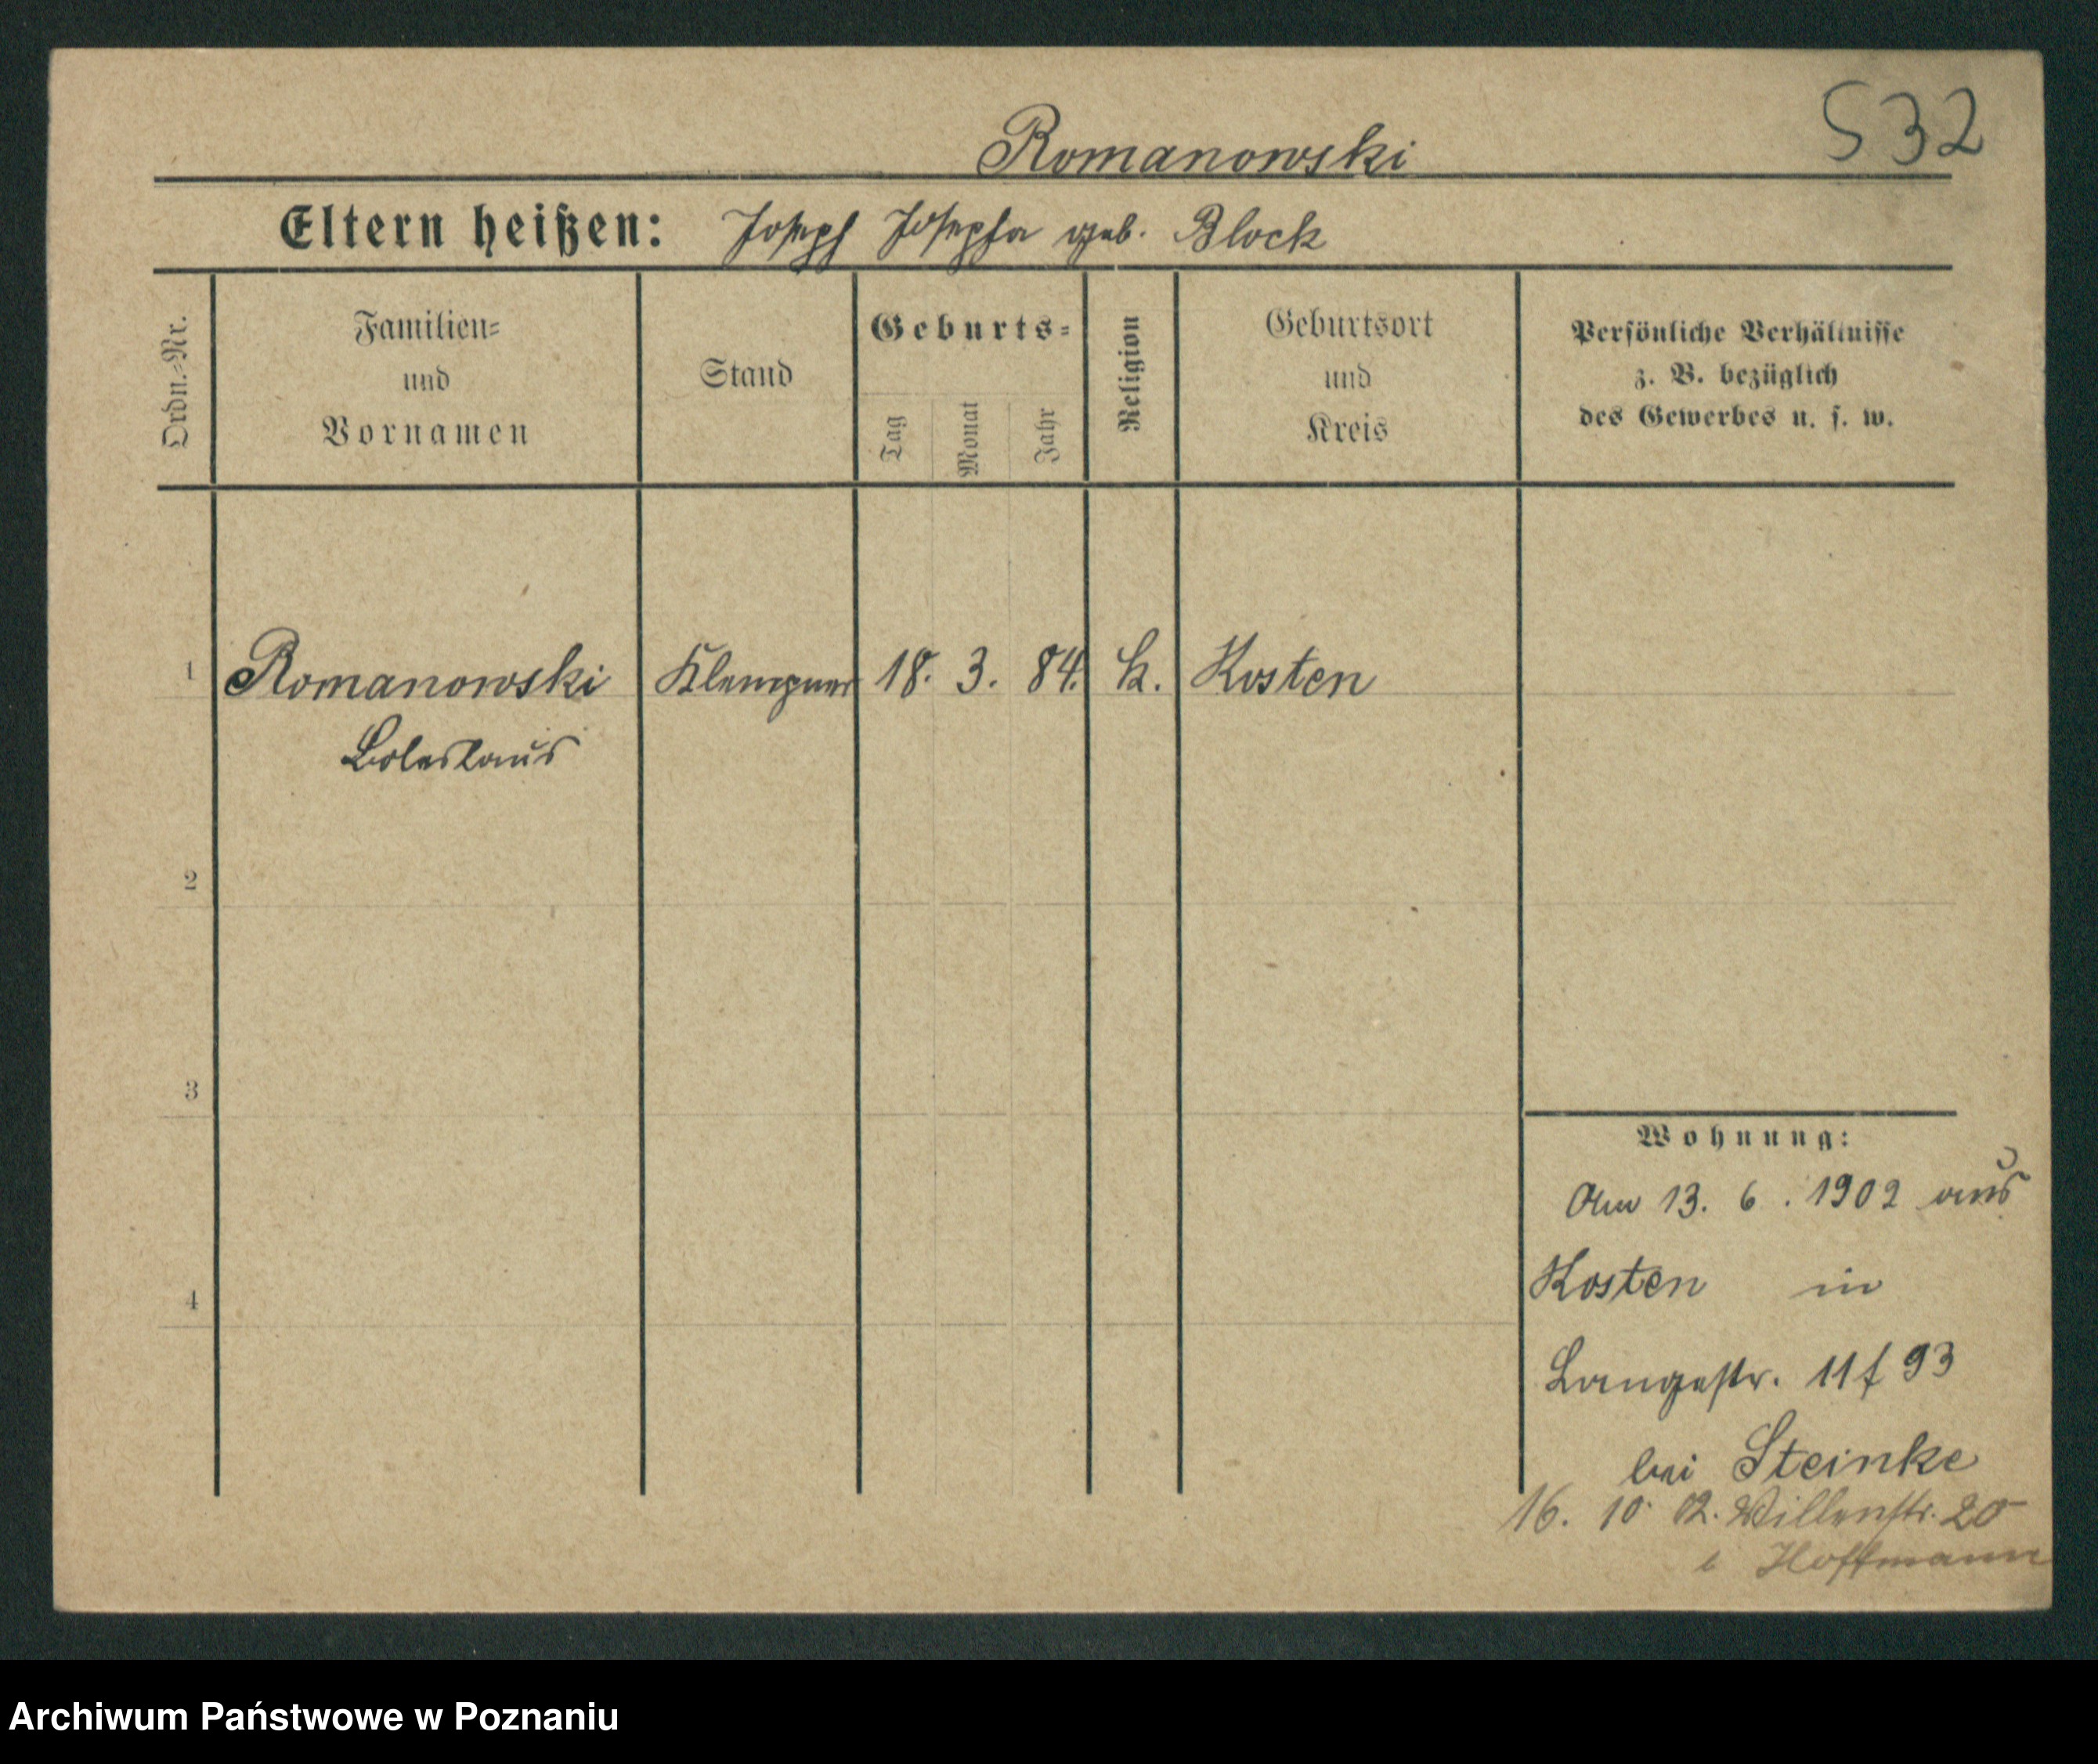 532
Romanowski
Eltern heißen: Joseph Josepha geb. Block
Ordn.-Nr.
Familien-
und
Vornamen
Stand
Geburts-
Tag
Monat
Jahr
Religion
Geburtsort
und
Kreis
Persönliche Verhältnisse
z. B. bezüglich
des Gewerbes u. s. w.
1 Romanowski Klempner 18. 3. 84. k. Kosten
Boleslaus
2
3
4
Wohnung:
Am 13. 6. 1902 aus
Kosten in
Langestr. 11 f 93
bei Steinke
16. 10 02. 20
b Hoffmann
Archiwum Państwowe w Poznaniu